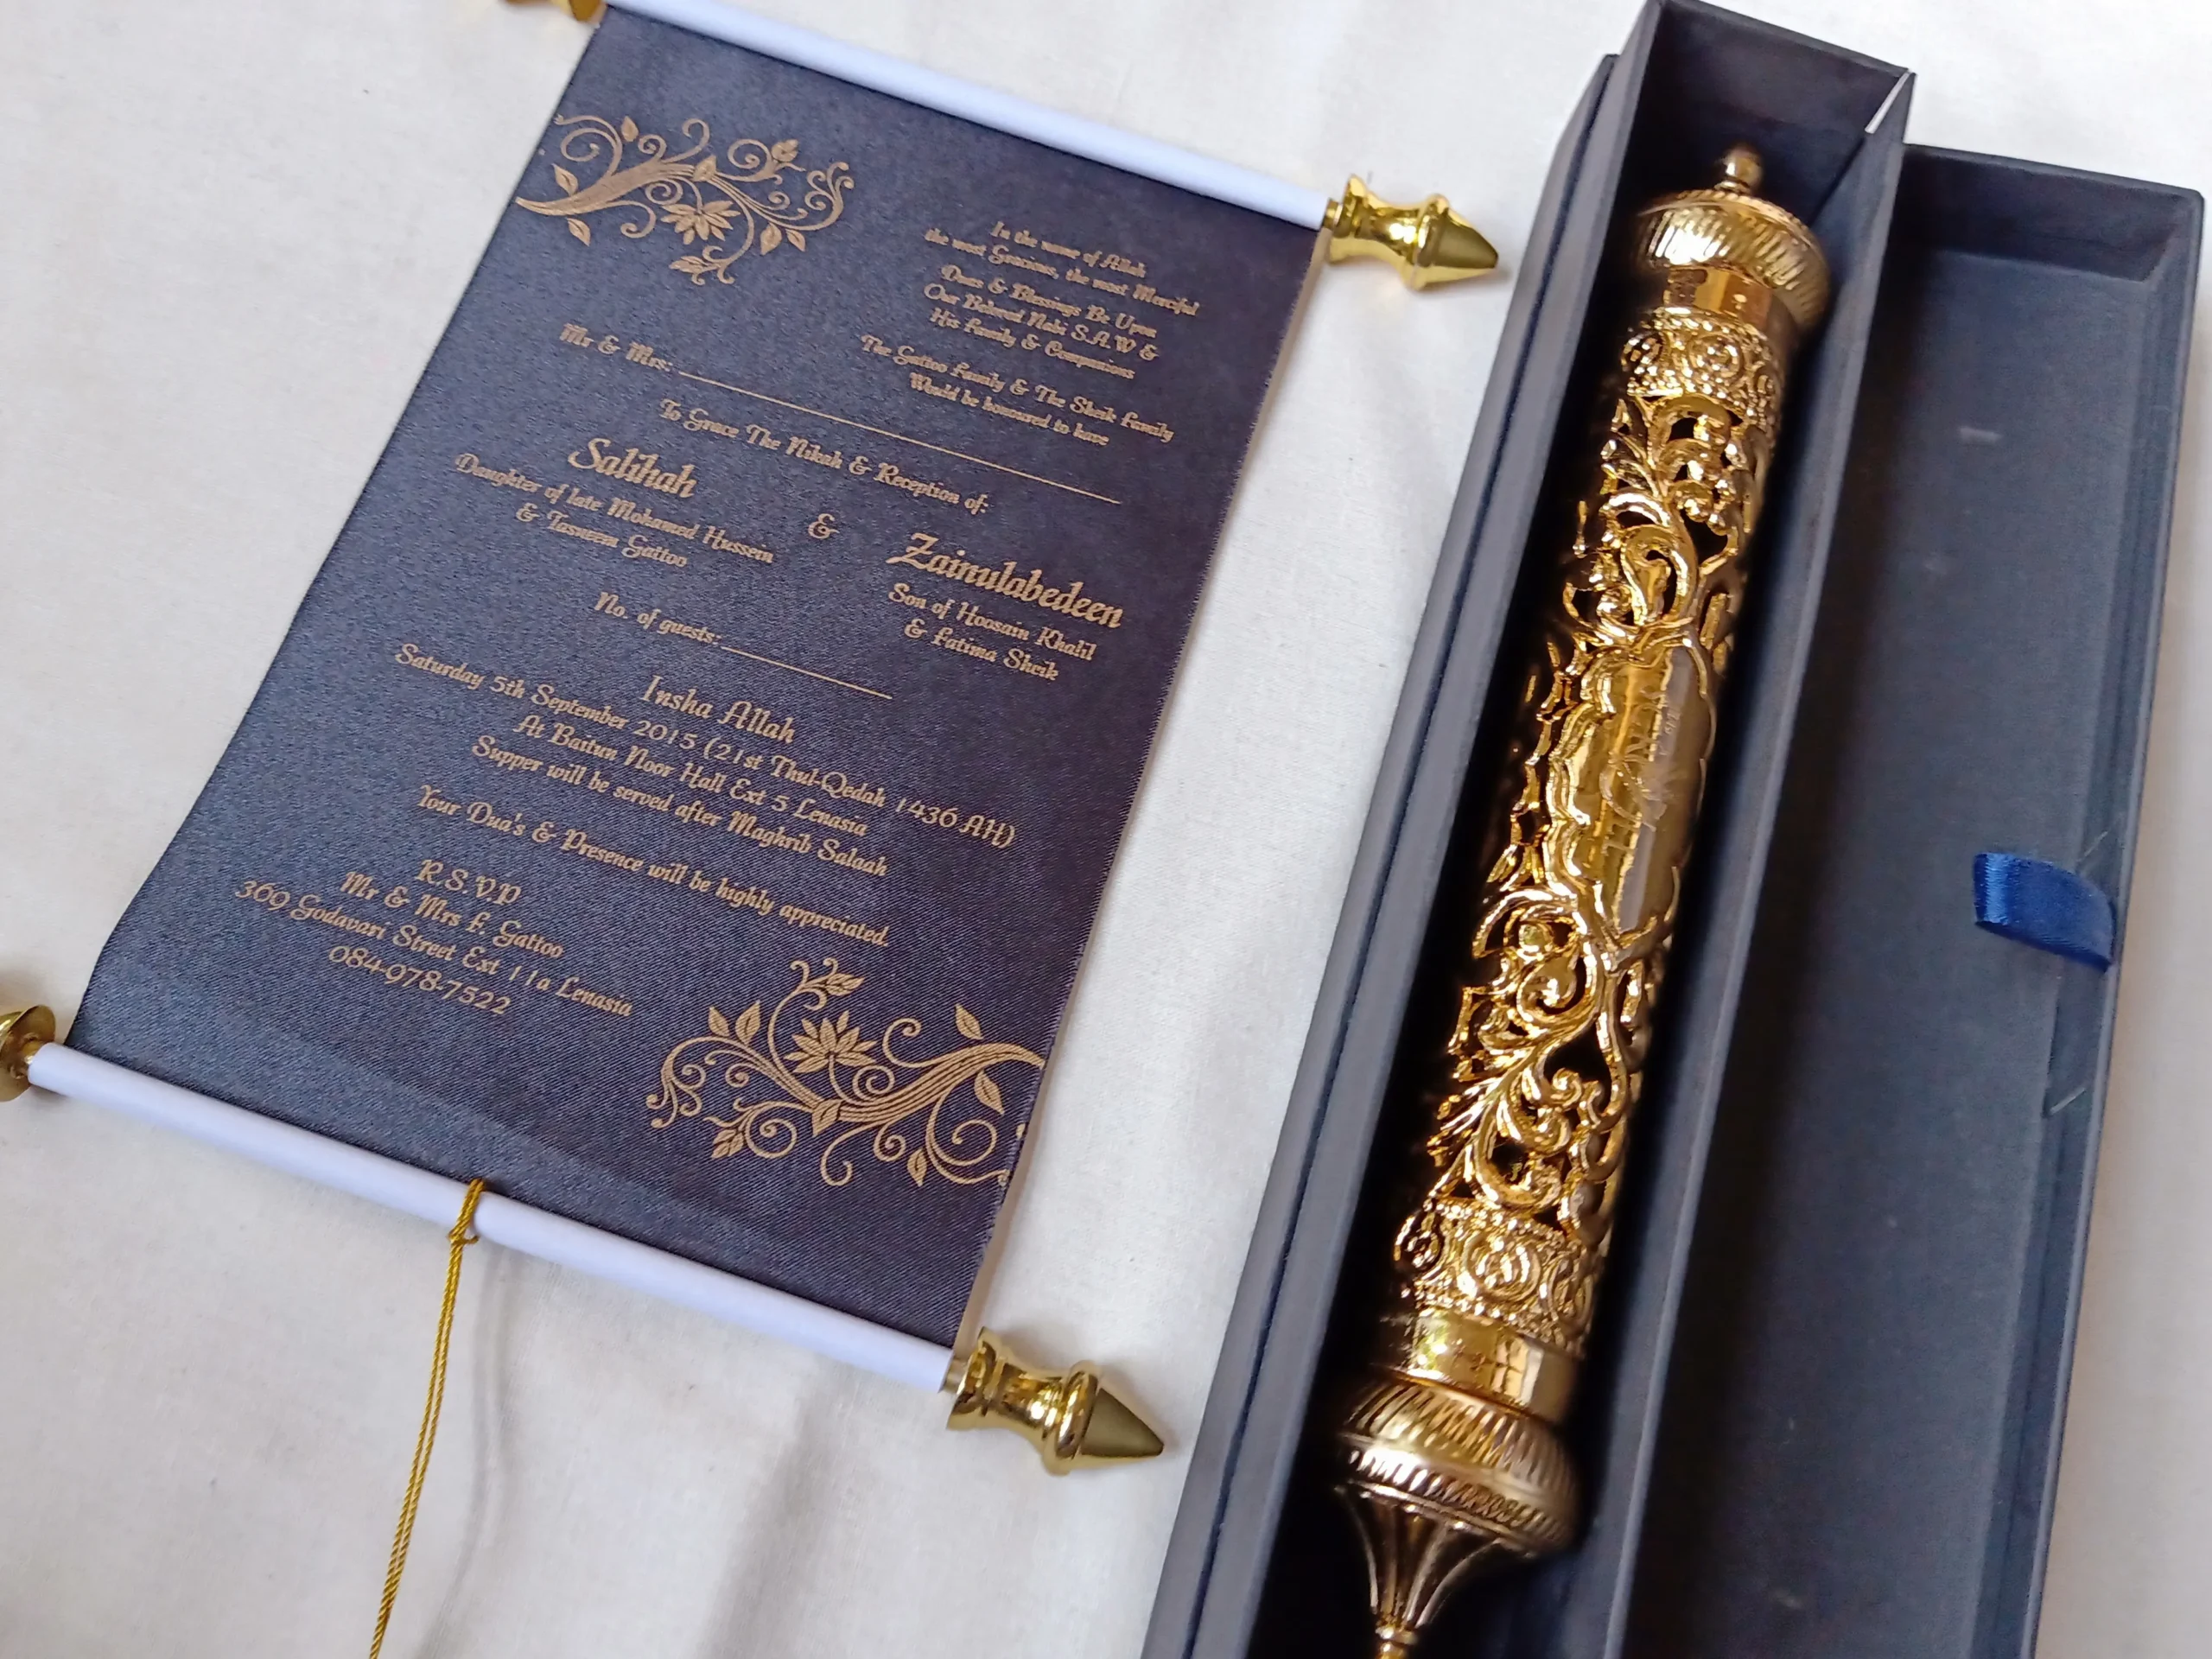 In the name of Allah
the most Gracious, the most Merciful
Duas & Blessings Be Upon
Our Beloved Nabi S.A.W &
His Family & Companions
The Gattoo Family & The Sheik Family
Would be honoured to have
Mr & Mrs:
To Grace The Nikah & Reception of:
Salihah
Daughter of late Mohamed Hussein
& Tasneem Gattoo
&
Zainulabedeen
Son of Hoosain Khalil
& Fatima Sheik
No. of guests:
Insha Allah
Saturday 5th September 2015 (21st Thul-Qedah 1436 AH)
At Baitun Noor Hall Ext 5 Lenasia
Supper will be served after Maghrib Salaah
Your Dua's & Presence will be highly appreciated.
R.S.V.P
Mr & Mrs F. Gattoo
369 Godavari Street Ext 11a Lenasia
084-978-7522